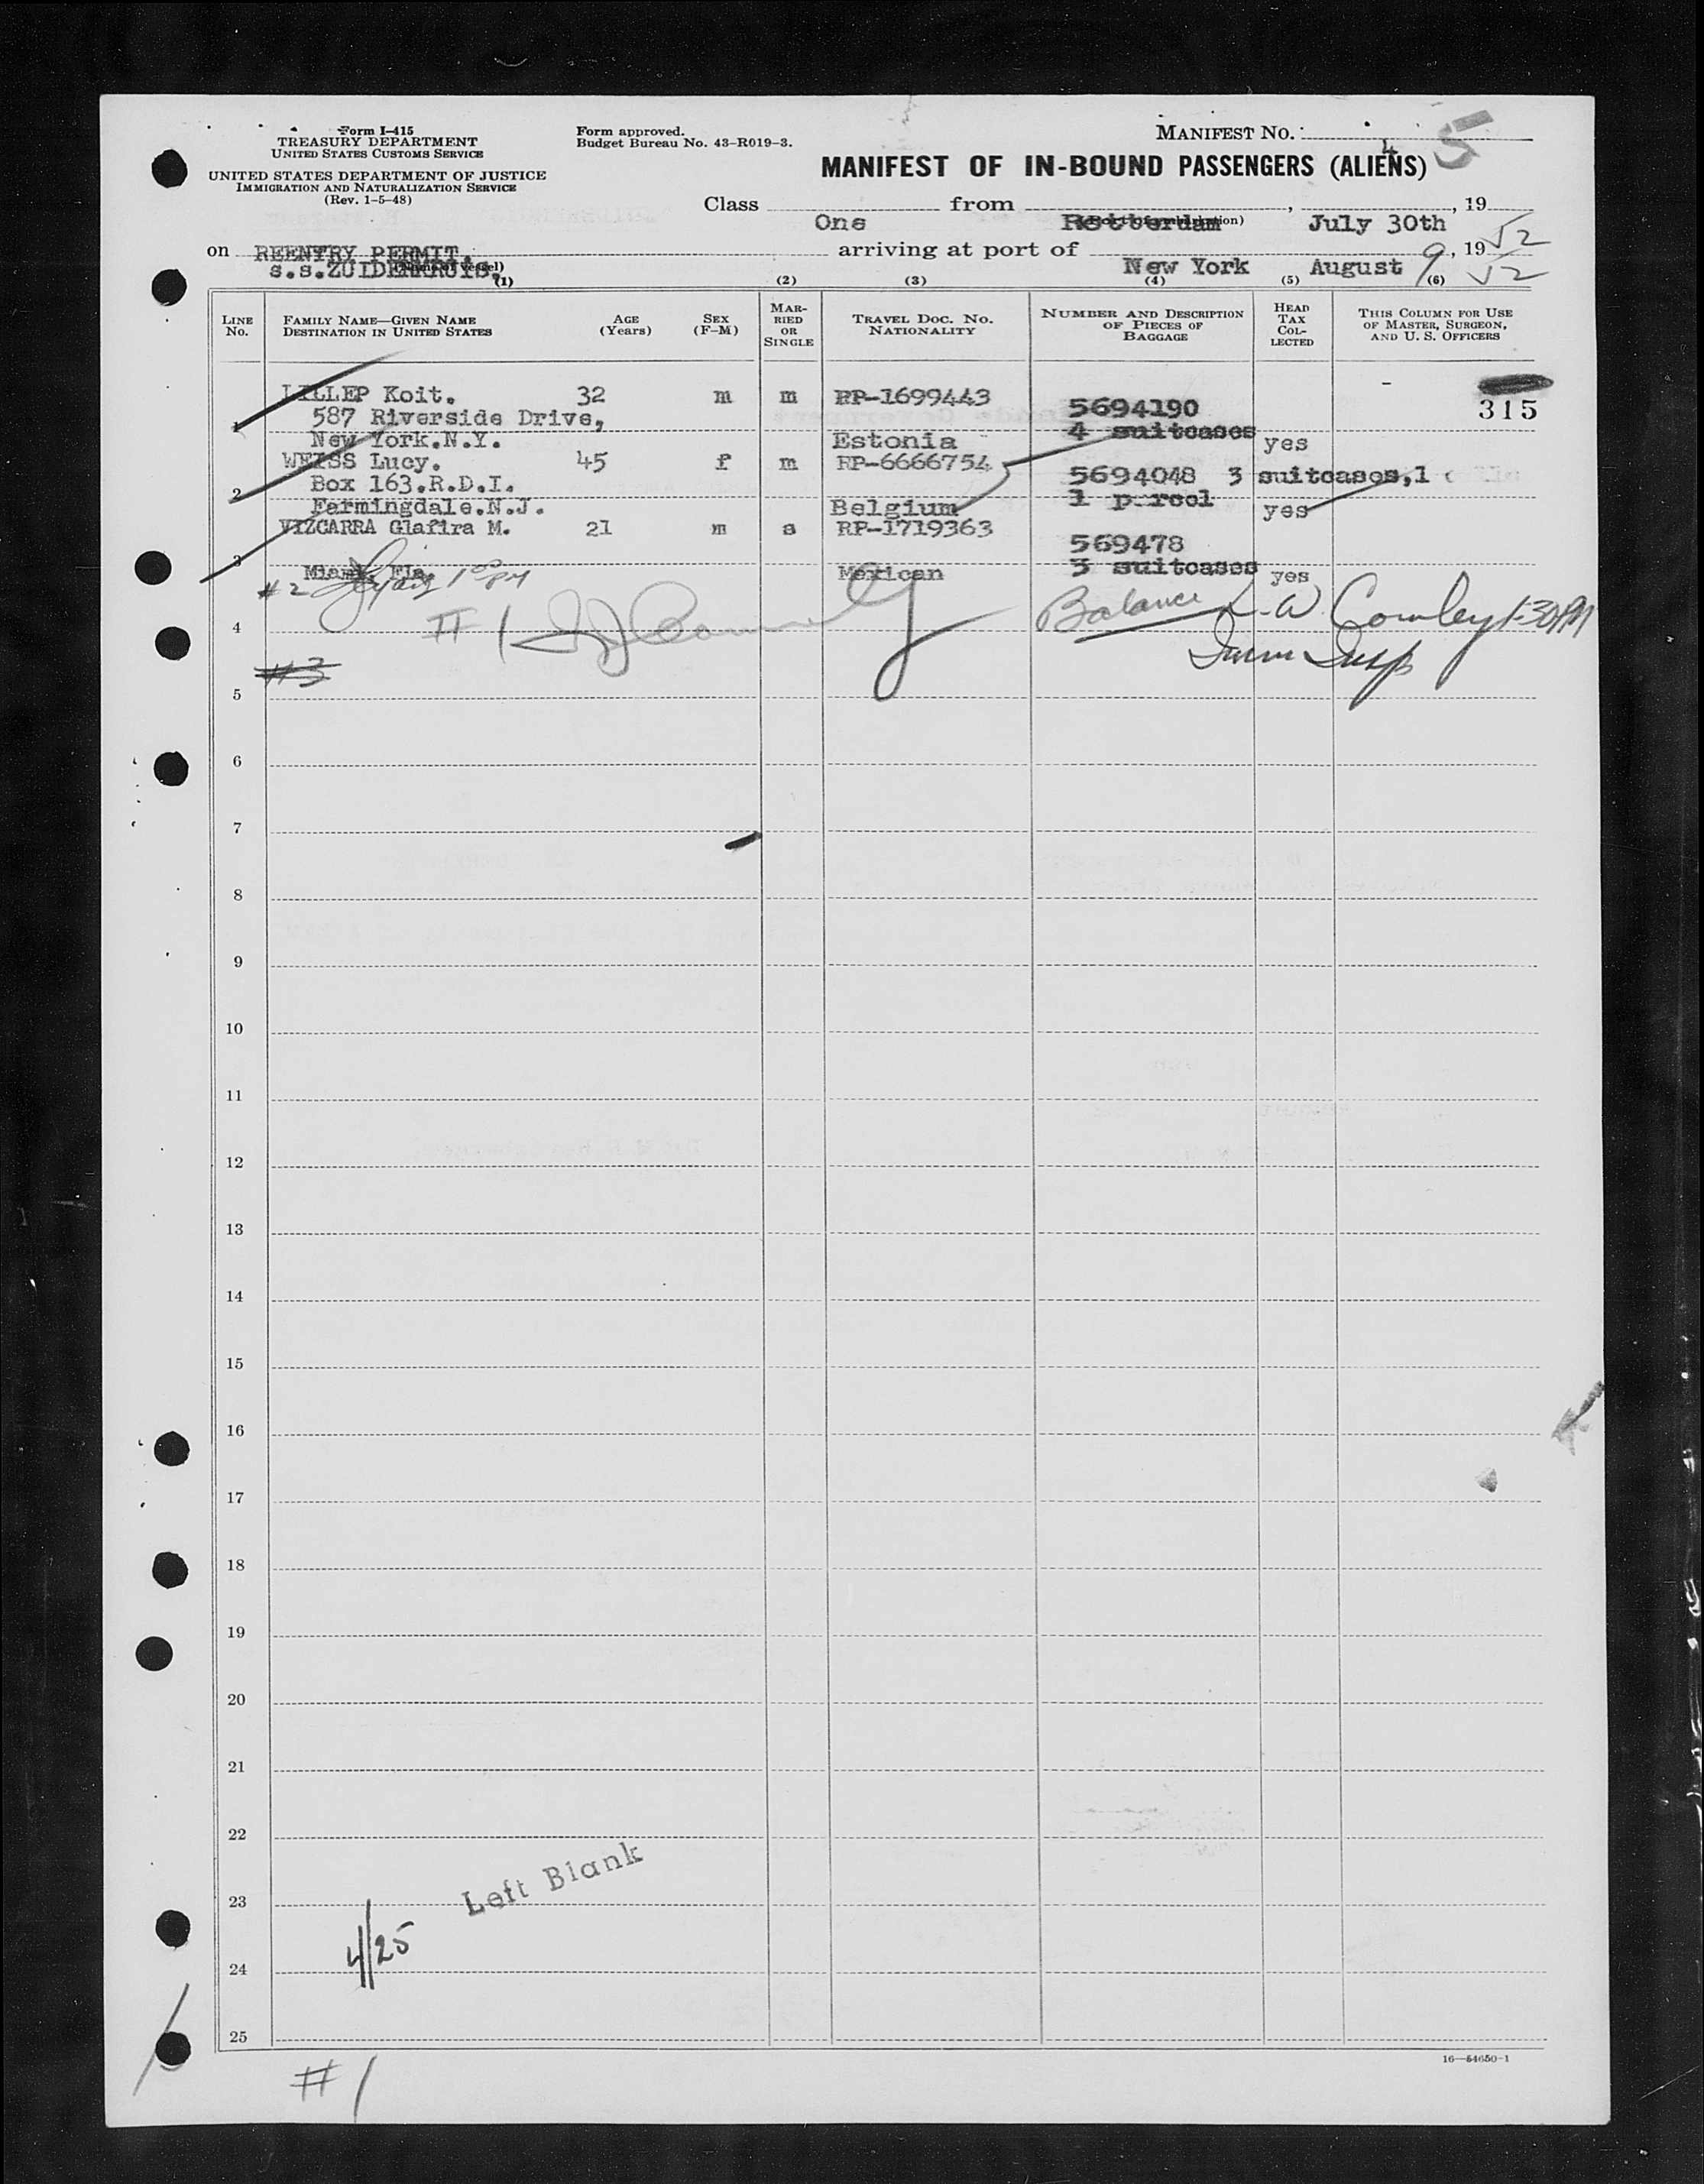 Form I-415
TREASURY DEPARTMENT
UNITED STATES CUSTOMS SERVICE
UNITED STATES DEPARTMENT OF JUSTICE
IMMIGRATION AND NATURALIZATION SERVICE
(Rev. 1-5-48)
Form approved.
Budget Bureau No. 43-R019-3.
MANIFEST NO.
4 5
MANIFEST OF IN-BOUND PASSENGERS (ALIENS)
Class One from Rotterdam, July 30th, 19 52
on REENTRY PERMIT.
s.s.ZUIDERKRUIS. arriving at port of New York August 9, 19 52
(1) (2) (3) (4) (5) (6)
LINE NO. FAMILY NAME—GIVEN NAME DESTINATION IN UNITED STATES AGE (Years) SEX (F–M) MARRIED OR SINGLE TRAVEL DOC. NO. NATIONALITY NUMBER AND DESCRIPTION OF PIECES OF BAGGAGE HEAD TAX COLLECTED THIS COLUMN FOR USE OF MASTER, SURGEON, AND U. S. OFFICERS
LILLEP Koit. 32 m m RP-1699443 315
1 587 Riverside Drive, 5694190
New York.N.Y. Estonia 4 suitcases yes
WEISS Lucy. 45 f m RP-6666754
2 Box 163.R.D.I. 5694048 3 suitcases,1
Farmingdale.N.J. Belgium 1 parcel yes
VIZCARRA Glafira M. 21 m s RP-1719363
3 569478
Miami, Fla. Mexican 3 suitcases yes
#2 1 00 PM
#1 Balance L.W. Cowley 1:30PM
4
Imm Insp
#3
5
6
7
8
9
10
11
12
13
14
15
16
17
18
19
20
21
22
Left Blank
23
4/25
24
25
16—54650-1
#1